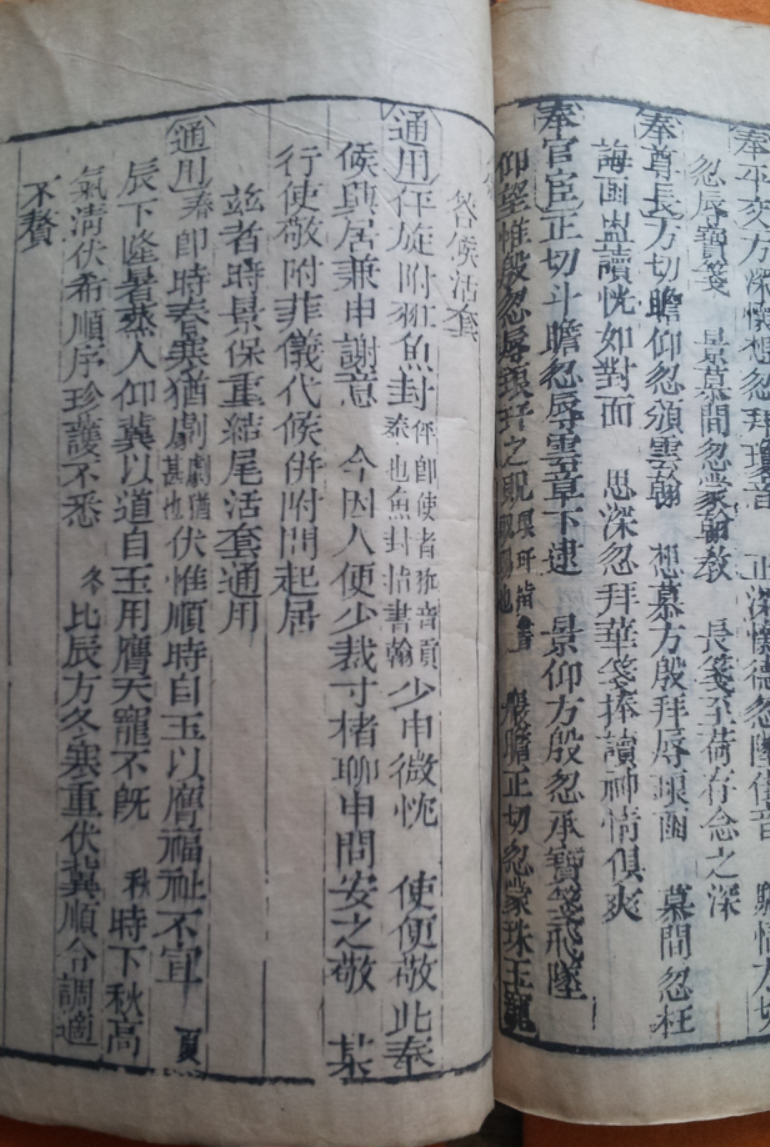 奉平交方深懷想忽拜瓊音 正深懷德忽墜佳音 瞻情方切
忽辱寶箋 景慕間忽蒙翰教 長箋至荷存念之深
奉尊長方切瞻仰忽頒雲翰 想慕方殷拜辱瑯函 慕間忽枉
誨函盥讀恍如對面 思深忽拜華箋捧讀神情俱爽
奉官宦正切斗瞻忽辱雲章下逮 景仰方殷忽承寶箋飛墜
仰望惟殷忽辱 之貺 瞻正切忽蒙珠玉寵
答候活套
通用伻旋附 魚封伻即使者 音貢 泰也魚封指書翰少申微忱 使便敬此奉
候興居兼申謝意 今因人便少裁寸楮聊申問安之敬 某
行使敬附菲儀代候併附問起居
茲者時景保重結尾活套通用
通用春即時春寒猶劇劇猶甚也伏惟順時自玉以膺福祉不宣 夏
辰下隆暑蒸人仰冀以道自玉用膺天寵不既 秋時下秋高
氣清伏希順序珍護不悉 冬比辰方冬寒重伏冀順令調適
不贅